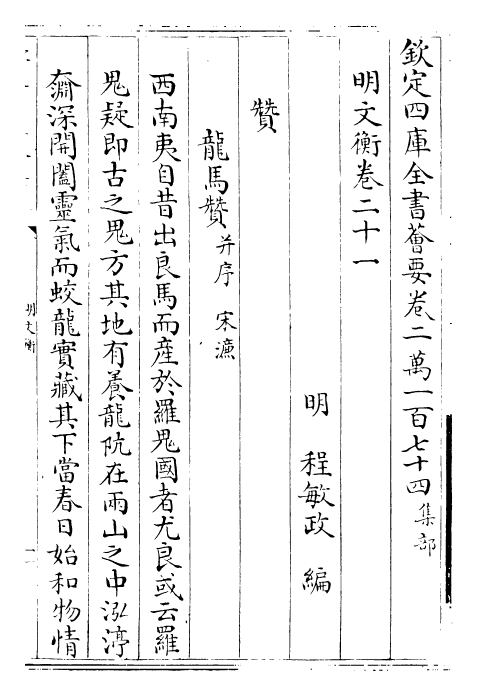 欽定四庫全書薈要卷二萬一百七十四集部
明文衡卷二十一
明 程敏政 編
贊
龍馬贊并序 宋濂
西南夷自昔出良馬而產於羅鬼國者尤良或云羅
鬼疑即古之鬼方其地有養龍阬在兩山之中泓渟
奫深開闔靈氣而蛟龍實藏其下當春日始和物情
明文衡